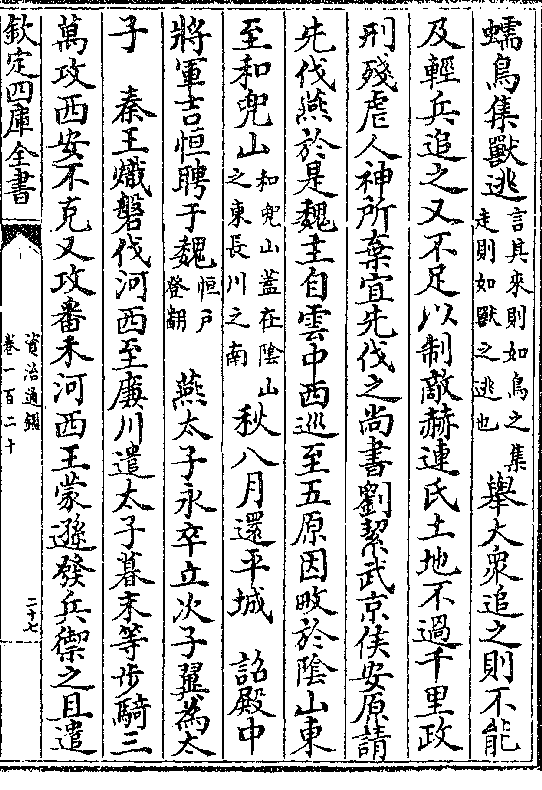 蠕鳥集獸逃言其來則如鳥之集走則如獸之逃也舉大衆追之則不能
及輕兵追之又不足以制敵赫連氏土地不過千里政
刑殘虐人神所棄宜先伐之尚書劉絜武京侯安原請
先伐燕於是魏主自雲中西巡至五原因畋於隂山東
至和兜山和兜山蓋在隂山之東長川之南秋八月還平城 詔殿中
將軍吉恒聘于魏恒戶登翻 燕太子永卒立次子翼為太
子 秦王熾磐伐河西至廉川遣太子暮末等步騎三
萬攻西安不克又攻番禾河西王蒙遜發兵禦之且遣
欽定四庫全書
資治通鑑
卷一百二十
二十七